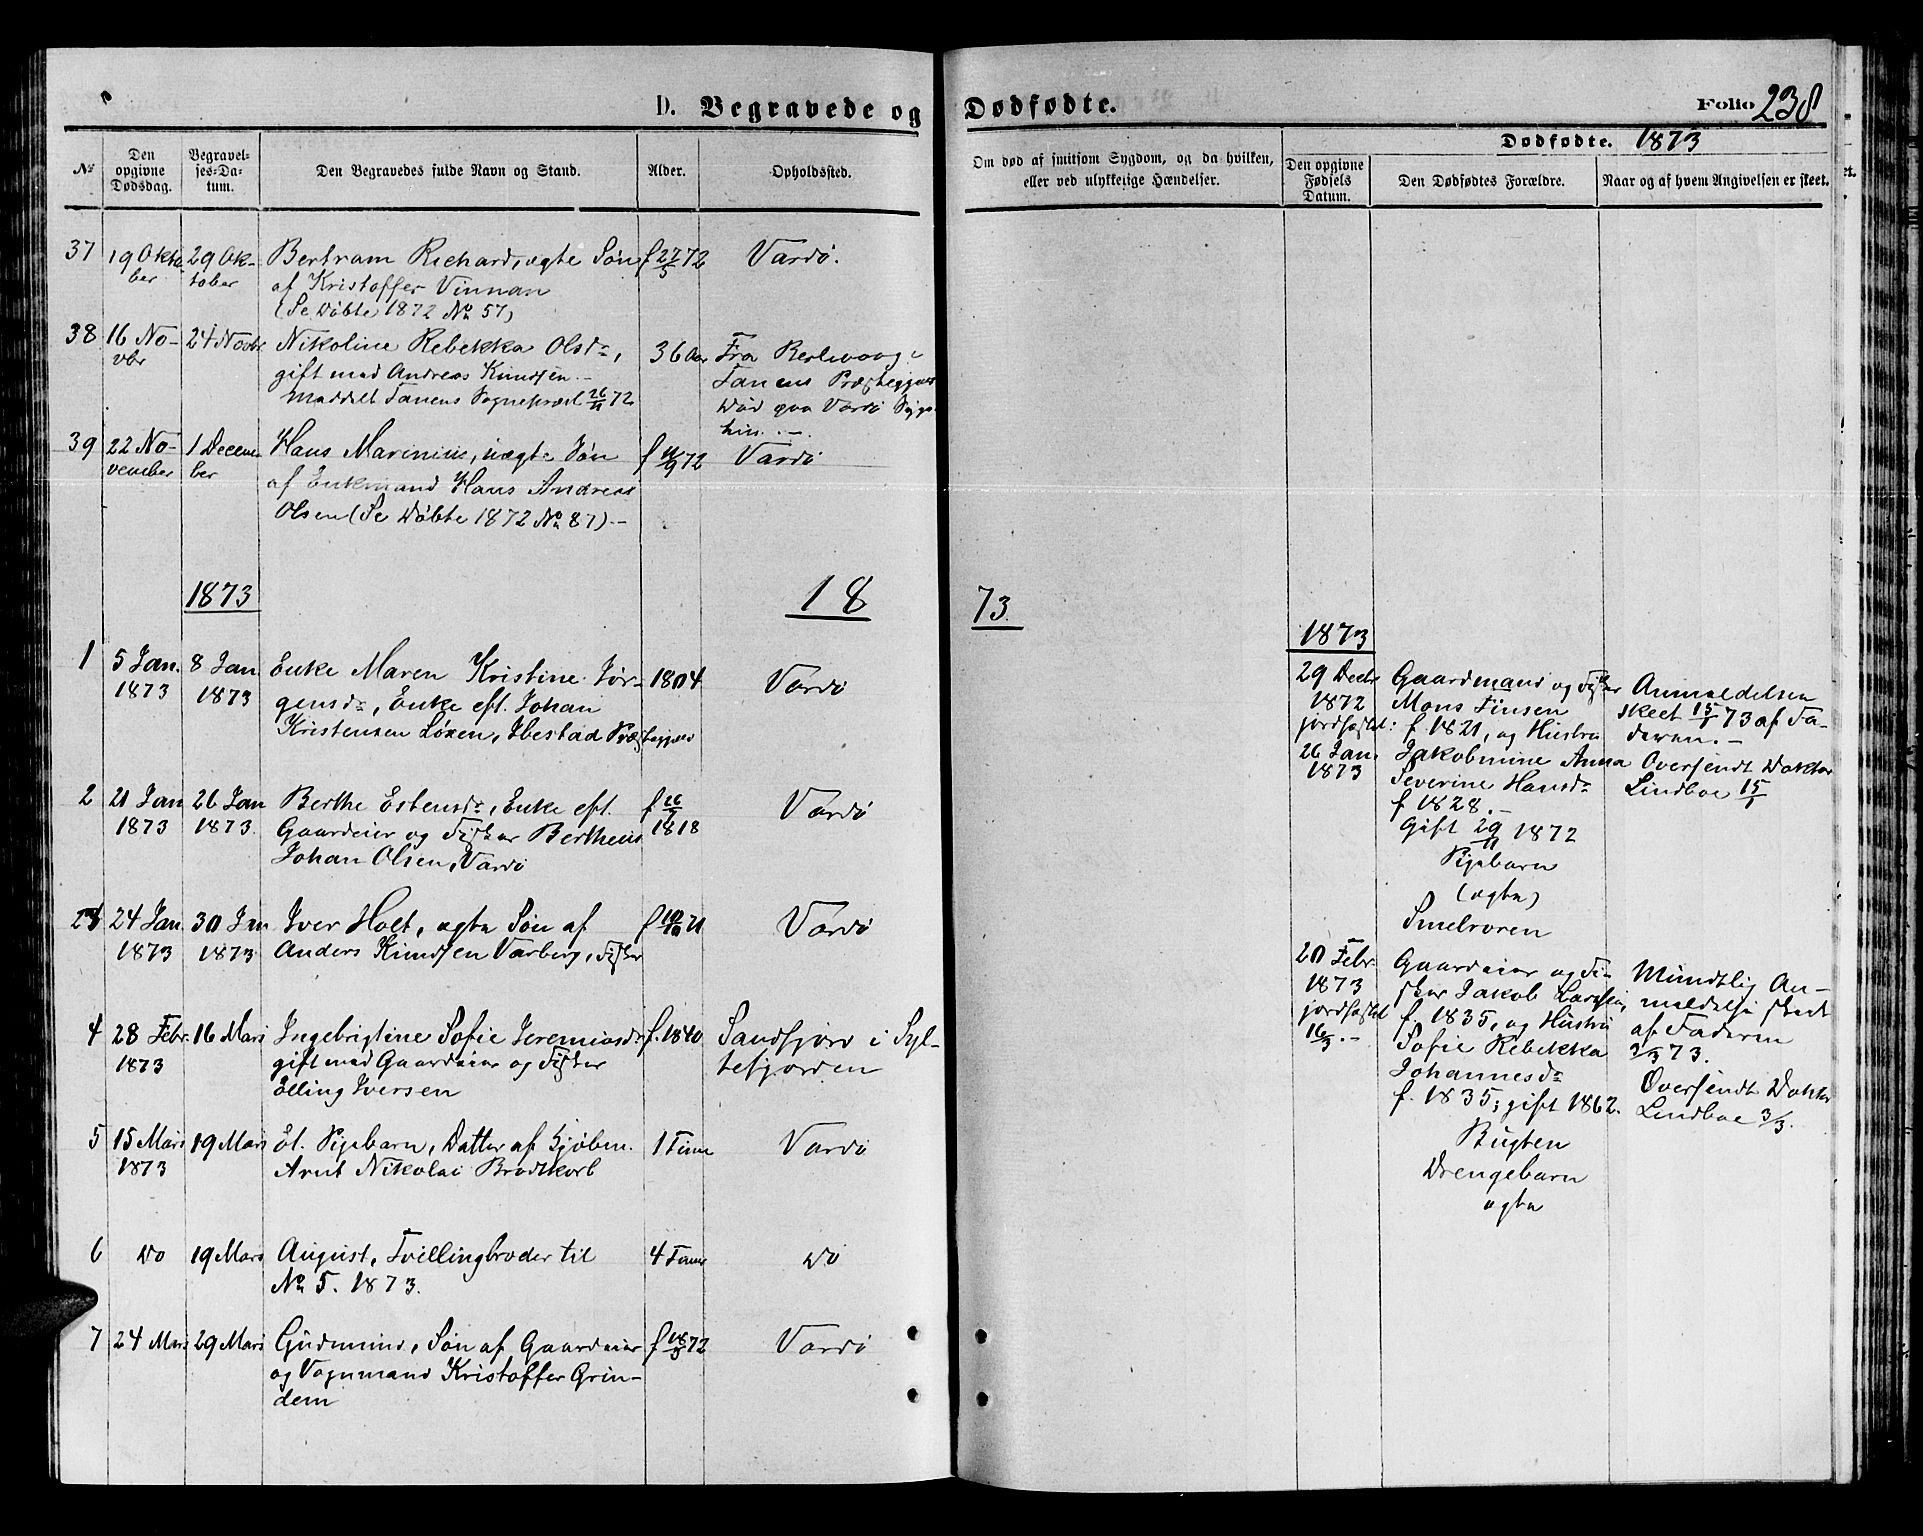 D. Begravede og Dødfødte.
Folio 238
Nr
Den opgivne Dødsdag.
Begravelses-Datum.
Den Begravedes fulde Navn og Stand.
Alder.
Opholdssted.
Om død af smitsom Sygdom, og da hvilken,
eller ved ulykkelige Hændelser.
Dødfødte. 1873
Den opgivne Fødsels Datum.
Den Dødfødtes Forældre.
Naar og af hvem Angivelsen er skeet.
37 19 Okto- 29 Ok- Bertram Richard, ægte Søn f 27/5 72 Vardø.
ber tober af Kristoffer Vinnan
(Se Døbte 1872 No 57)
38 16 No- 24 Novbr Nikoline Rebekka Olsdr, 36 Aar Fra Berlevaag i
vbr gift med Andreas Knudsen.- Tanens Præstegjæld
Meddelt Tanens Sognepræst 26/11 72 Død paa Vardø Syge-
hus. -
39 22 No- 1 Decem- Hans Marinius, uægte Søn f 11/9 72 Vardø
vember ber af Enkemand Hans Andreas
Olsen (Se Døbte 1872 No 87) -
1873 18 73.
1 5 Jan. 8 Jan Enke Maren Kristine Jør- 1804 Vardø
1873 1873 gensdr, Enke eft. Johan
Kristensen Løxen, Ibestad Præstegjæld
2 21 Jan 26 Jan Berthe Estensdr, Enke eft. f 26/7 Vardø
1873 1873. Gaardeier og Fisker Bertheus 1818
Johan Olsen, Vardø
3 24 Jan 30 Jan Iver Holt, ægte Søn af f 10/10 71 Vardø
1873 1873 Anders Knudsen Varberg, Fisker
4 28 Febr. 16 Mars Ingebrigtine Sofie Jeremiasdr f. 1840 Sandfjord i Syl-
1873 gift med Gaardeier og Fisker tefjorden
Elling Iversen
5 15 Mars 19 Mars Et Pigebarn, Datter af Kjøbm. 1 Time Vardø
1873 Arnt Nikolai Brodtkorb
6 Do 19 Mars August, Tvillingbroder til 4 Timer Do
No 5. 1873.
7 24 Mars 29 Mars Gudmund, Søn af Gaardeier f 18/5 72 Vardø
og Vognmand Kristoffer Grin-
dem
1873
29 Decbr Gaardmand og Fisker Anmeldelsen
1872 Mons Finsen skeet 15/1 73 af Fa-
jordfæstet: f. 1821, og Hustru deren. -
26 Jan. Jakobmine Anna Oversendt Doktor
1873 Severine Hansdr Lindboe 15/1
f 1828. -
Gift 29/11 1872
Pigebarn
(ægte)
Smelroren
20 Febr. Gaardeier og Fi- Mundtlig An-
1873 sker Jakob Larssen, meldelse skeet
jordfæstet f. 1835, og Hustru af Faderen
16/3. - Sofie Rebekka 3/3 73.
Johannesdr Oversendt Doktor
f. 1835; gift 1862. Lindboe 3/3.
Bugten
Drengebarn
ægte